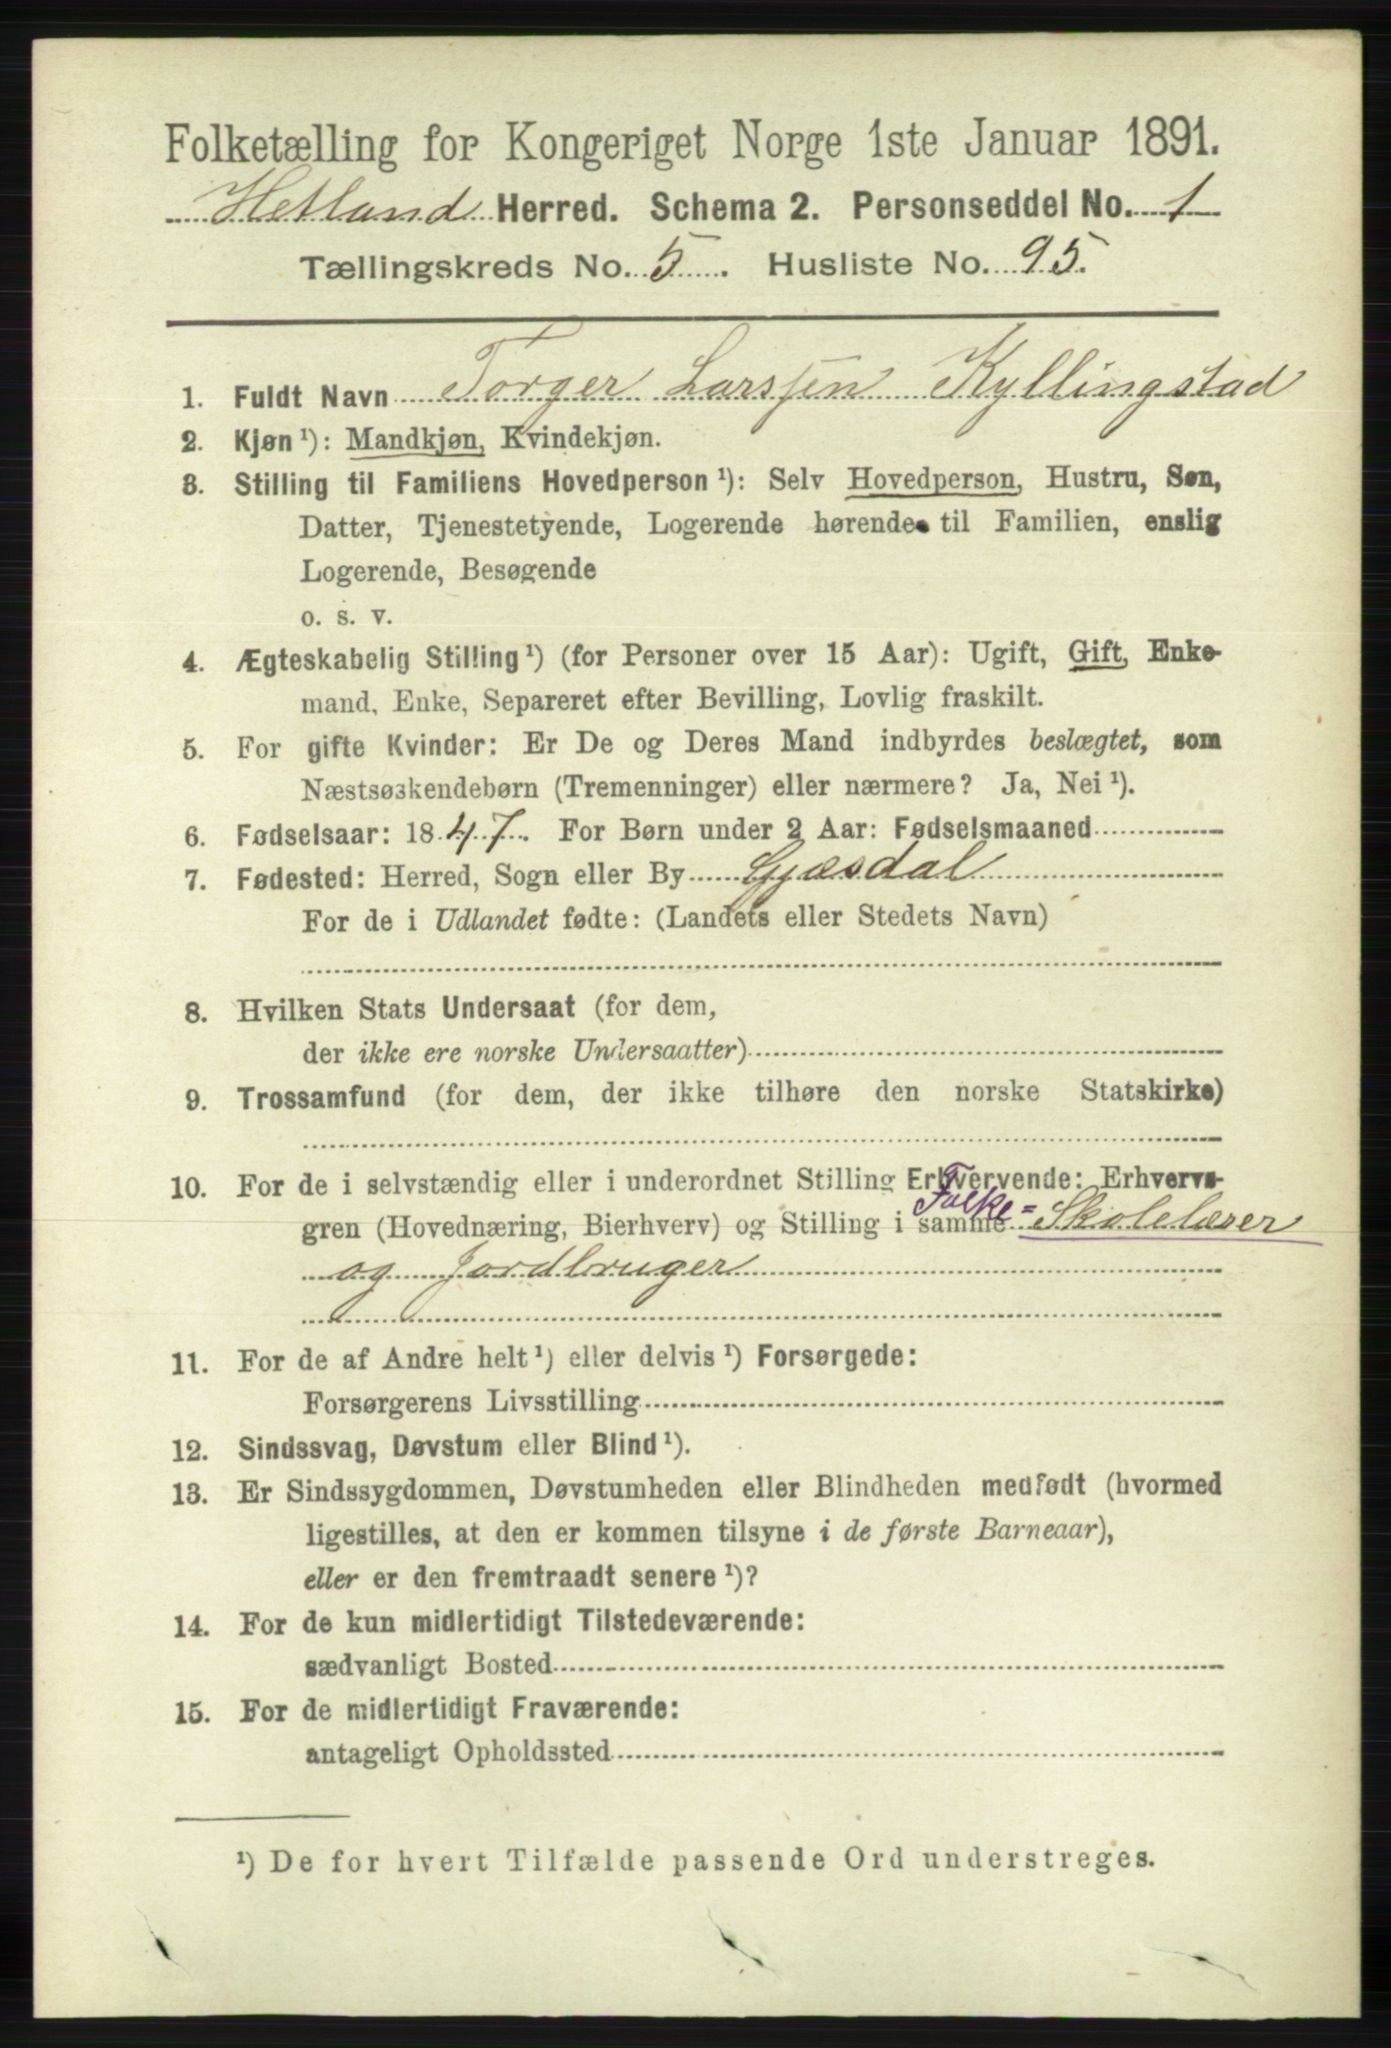 Folketælling for Kongeriget Norge 1ste Januar 1891.
Hetland Herred. Schema 2. Personseddel No. 1
Tællingskreds No. 5. Husliste No. 95.
1. Fuldt Navn Torger Larssen Kyllingstad
2. Kjøn ¹): Mandkjøn, Kvindekjøn.
3. Stilling til Familiens Hovedperson ¹): Selv Hovedperson, Hustru, Søn,
Datter, Tjenestetyende, Logerende hørende til Familien, enslig
Logerende, Besøgende
o. s. v.
4. Ægteskabelig Stilling ¹) (for Personer over 15 Aar): Ugift, Gift, Enke-
mand, Enke, Separeret efter Bevilling, Lovlig fraskilt.
5. For gifte Kvinder: Er De og Deres Mand indbyrdes beslægtet, som
Næstsøskendebørn (Tremenninger) eller nærmere? Ja, Nei ¹).
6. Fødselsaar: 1847. For Børn under 2 Aar: Fødselsmaaned
7. Fødested: Herred, Sogn eller By Gjæsdal
For de i Udlandet fødte: (Landets eller Stedets Navn)
8. Hvilken Stats Undersaat (for dem,
der ikke ere norske Undersaatter)
9. Trossamfund (for dem, der ikke tilhøre den norske Statskirke)
10. For de i selvstændig eller i underordnet Stilling Erhvervende: Erhvervs-
gren (Hovednæring, Bierhverv) og Stilling i samme Folke= Skolelærer
og Jordbruger
11. For de af Andre helt ¹) eller delvis ¹) Forsørgede:
Forsørgerens Livsstilling
12. Sindssvag, Døvstum eller Blind ¹).
13. Er Sindssygdommen, Døvstumheden eller Blindheden medfødt (hvormed
ligestilles, at den er kommen tilsyne i de første Barneaar),
eller er den fremtraadt senere ¹)?
14. For de kun midlertidigt Tilstedeværende:
sædvanligt Bosted
15. For de midlertidigt Fraværende:
antageligt Opholdssted
¹) De for hvert Tilfælde passende Ord understreges.